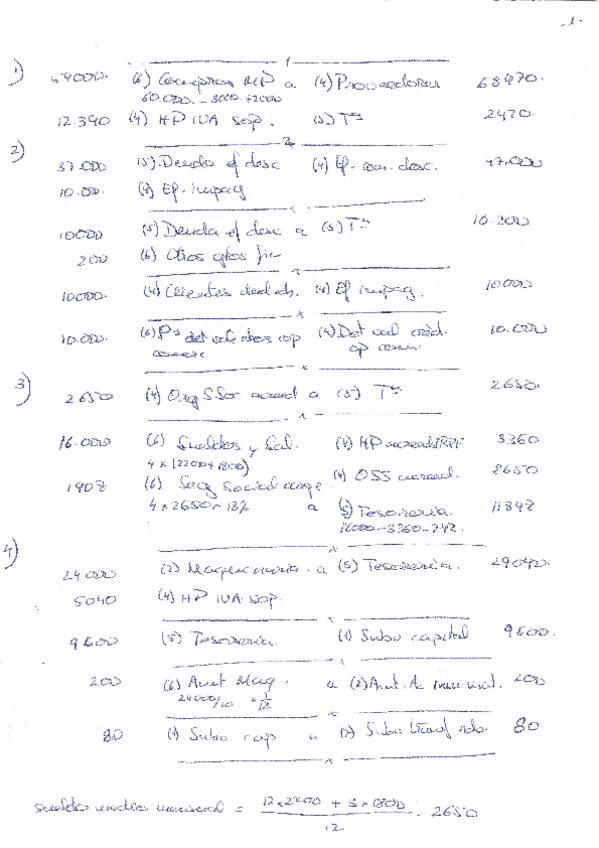 -1-
1
1) 59000. (6) Compras MP a (4) Proveedores 68970.
60.000. - 3000 + 2000
12.390 (4) HP IVA sop. (5) Tª 2420
2
2) 37.000 (5) Deuda ef desc (4) Ef. com. desc. 47.000
10.000. (4) Ef. impag
10000 (5) Deuda ef desc a (5) Tª 10.200
200 (6) Otros gtos fin
10000. (4) Clientes dud cob. (4) Ef impag. 10000
10.000. (6) Pª det val ctos op (4) Det val créd. 10.000
comerc op com.
3) 2650 (4) Org SSoc acreed a (5) Tª 2650.
16.000 (6) Sueldos y Sal. (4) HP acreed IRPF 3360
4 x (2200 + 1800)
1908 (6) Seg Social carg. (4) OSS acreed. 2650
4 x 2650 x 18% a (5) Tesorería. 11898
16000 - 3360 - 742.
4) 24000 (2) Maquinaria a (5) Tesorería. 29040.
5040 (4) HP IVA sop.
9600 (5) Tesorería (1) Subv capital 9600.
200 (6) Amt Maq. a (2) Amt. Ac inm mat. 200
24000/10 x 1/12
80 (1) Subv cap a (7) Subv transf rdo. 80
sueldo medio mensual = 12 x 2200 + 3 x 1800 / 12 = 2650